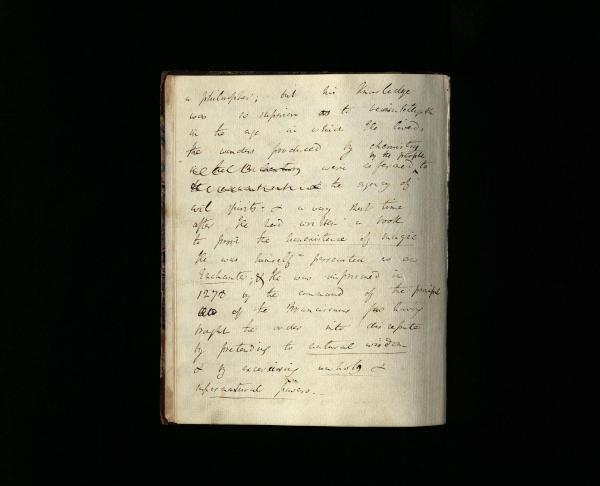 a philosopher; but his knowledge
was so superior as to be unintelligible
in the age in which He lived,
the wonders produced by chemistry
by the people
were referred to
the agency of
evil spirits & a very short time
after He had written a book
to prove the nonexistence of magic
He was himself persecuted as an
Enchanter, & He was imprisoned in
1278 by the command of the
of the Franciscans for having
brought the order into disrepute
by pretending to natural wisdom
& by exercising unholy &
supernatural powers. _